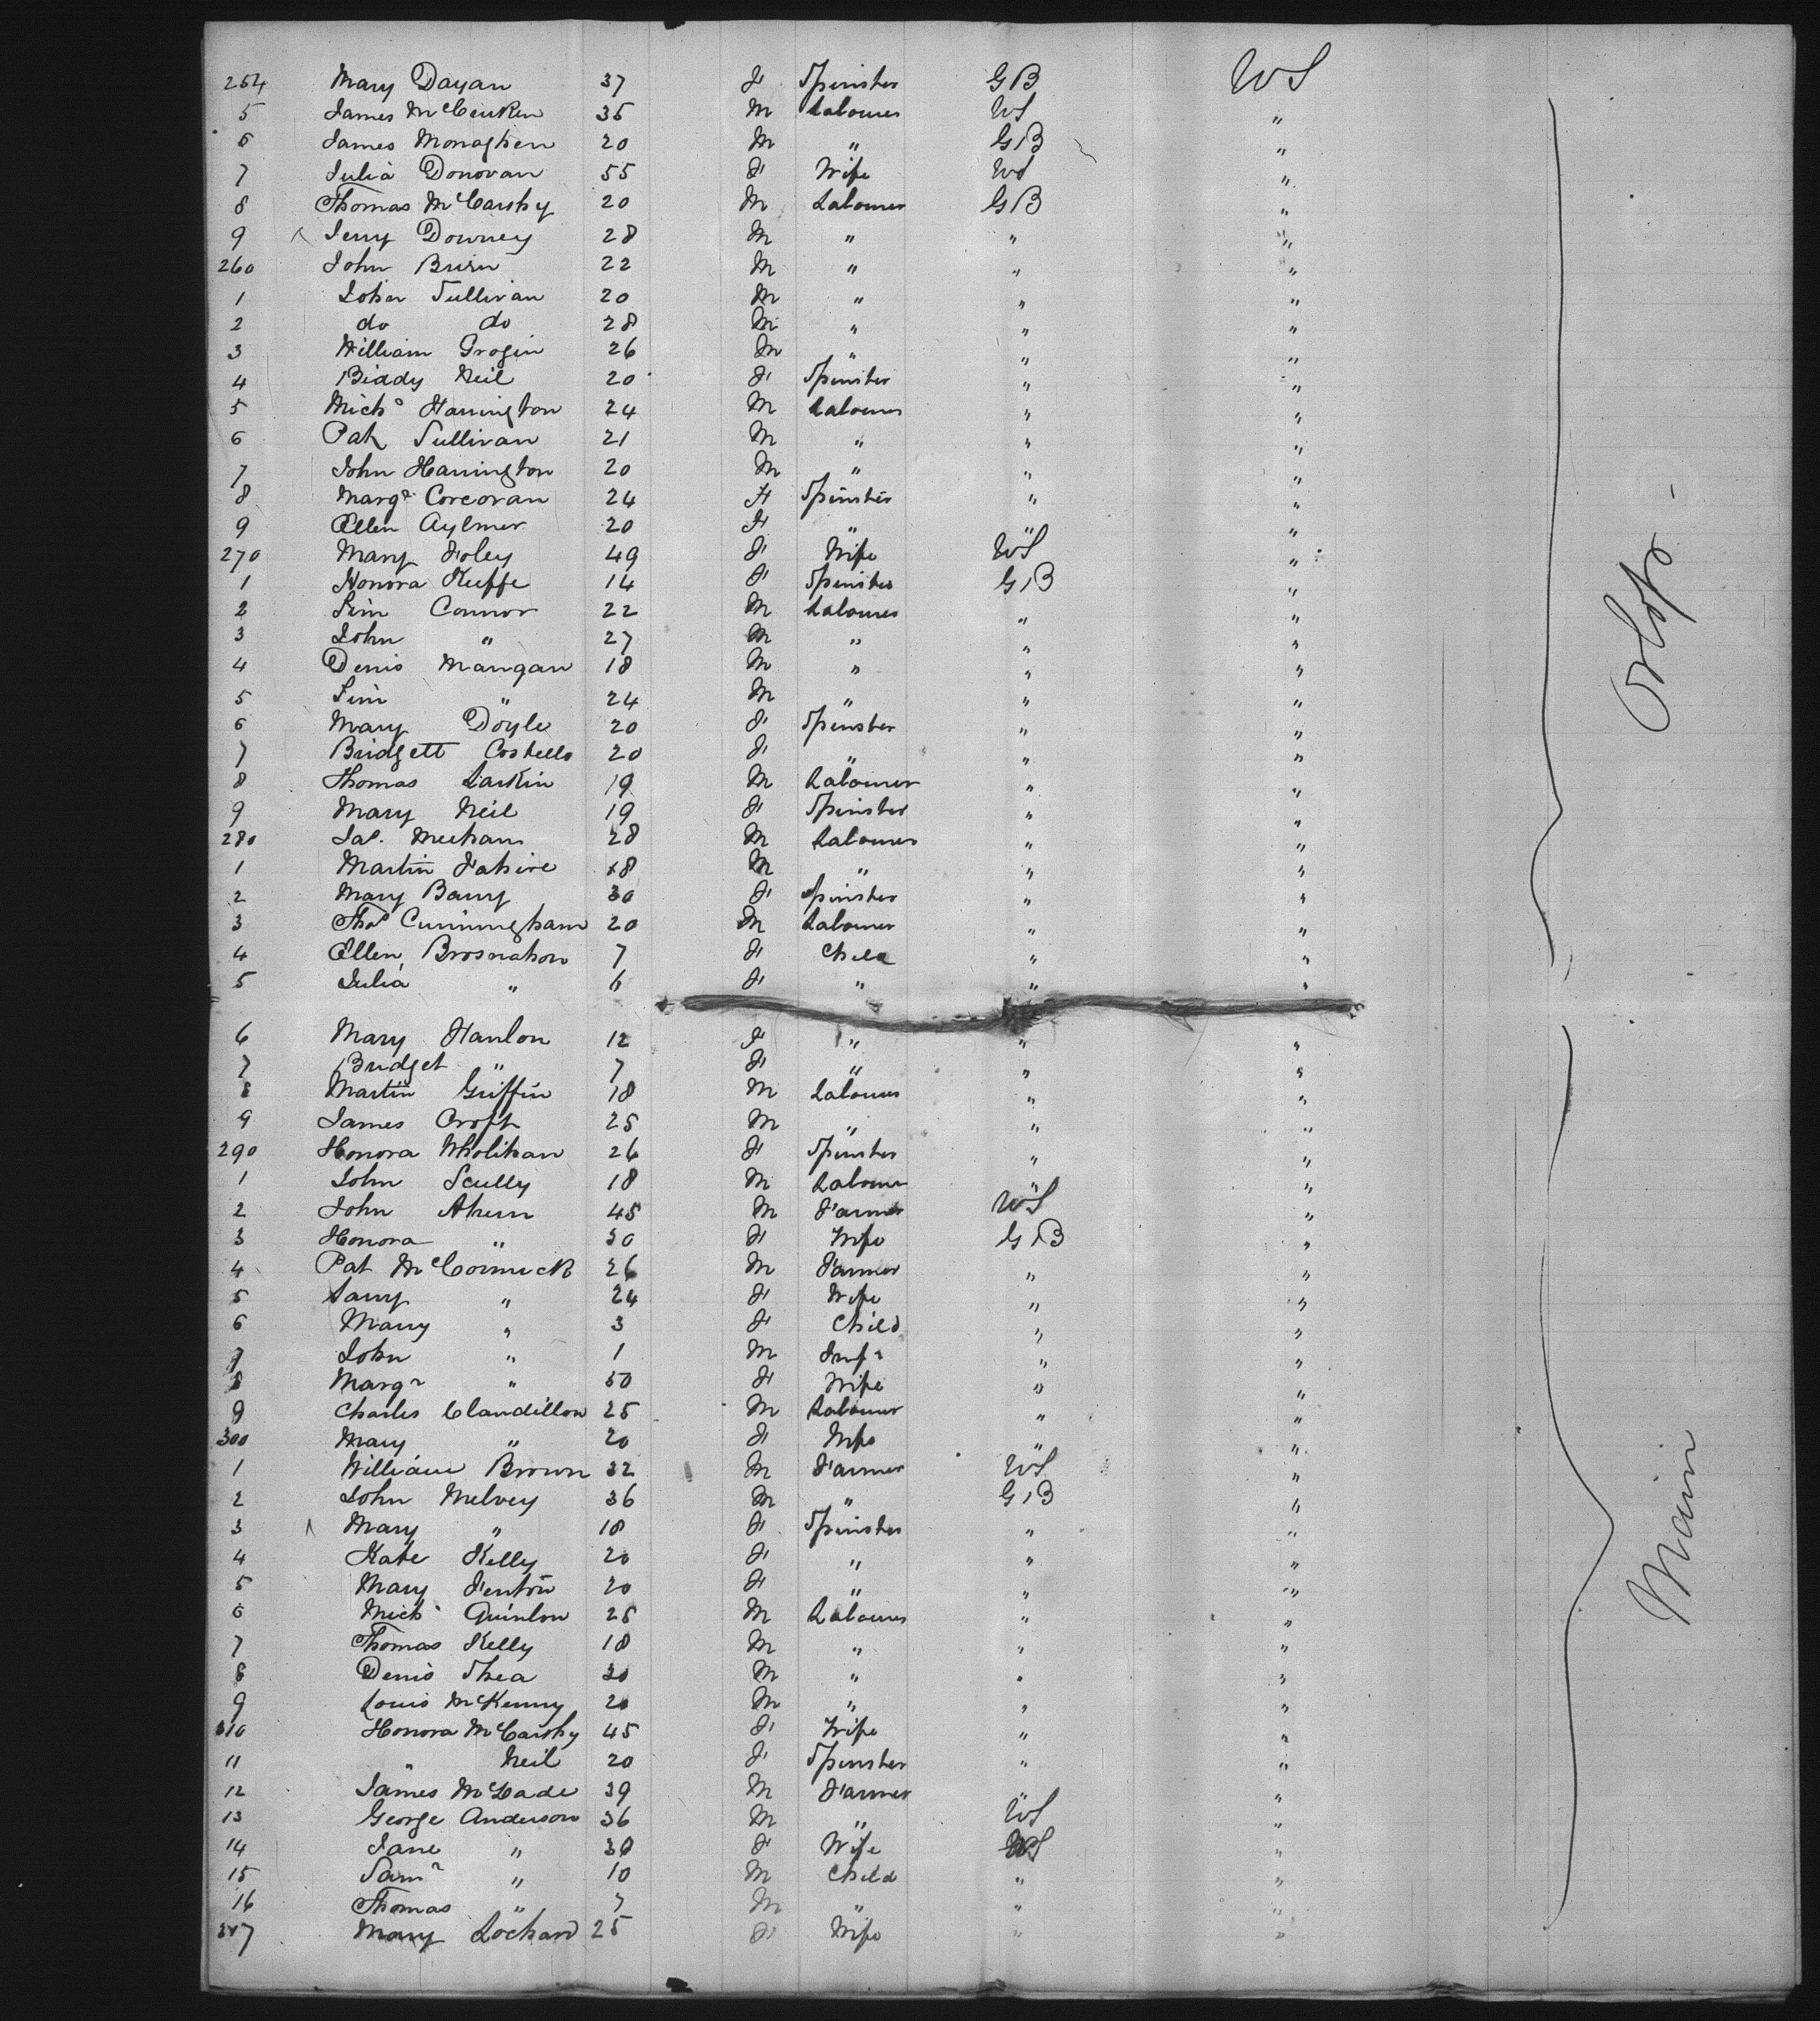 254 Mary Dayan 37 F Spinster GB WS
5 James McCrucken 35 M Labourer WS "
6 James Monaghen 20 M " GB "
7 Julia Donovan 55 F Wife WS "
8 Thomas McCarthy 20 M Labourer GB "
9 Jerry Downey 28 M " " "
260 John Brien 22 M " " "
1 John Sullivan 20 M " " "
2 do do 28 M " " "
3 William Grogin 26 M " " "
4 Biddy Neil 20 F Spinster " "
5 Michl Harrington 24 M Labourer " "
6 Pat Sullivan 21 M " " "
7 John Harrington 20 M " " "
8 Margt Corcoran 24 F Spinster " "
9 Ellen Aylmer 20 F " " "
270 Mary Foley 49 F Wife WS "
1 Honora Keeffe 14 F Spinster GB "
2 Jim Connor 22 M Labourer " "
3 John " 27 M " " "
4 Denis Mangan 18 M " " "
5 Jim " 24 M " " "
6 Mary Doyle 20 F Spinster " "
7 Bridgett Costello 20 F " " "
8 Thomas Larkin 19 M Labourer " "
9 Mary Neil 19 F Spinster " "
280 Jas. Meehan 28 M Labourer " "
1 Martin Fahire 18 M " " "
2 Mary Barry 30 F Spinster " "
3 Thos Cunningham 20 M Labourer " "
4 Ellen Brosnahon 7 F Child " "
5 Julia " 6 F " " "
Orlop
6 Mary Hanlon 12 F " " "
7 Bridget " 7 F " " "
8 Martin Griffin 18 M Labourer " "
9 James Croft 25 M " " "
290 Honora Wholihan 26 F Spinster " "
1 John Scully 18 M Labourer " "
2 John Ahern 45 M Farmer WS "
3 Honora " 30 F Wife GB "
4 Pat McCormick 26 M Farmer " "
5 " 24 F Wife " "
6 Mary " 3 F Child " "
7 John " 1 M Inft " "
8 Margt " 50 F Wife " "
9 Charles Clandillon 25 M Labourer " "
300 Mary " 20 F Wife " "
1 William Brown 32 M Farmer WS "
2 John Melvey 36 M " GB "
3 Mary " 18 F Spinster " "
4 Kate Kelly 20 F " " "
5 Mary Fenton 20 F " " "
6 Mich Quinlon 25 M Labourer " "
7 Thomas Kelly 18 M " " "
8 Denis Shea 30 M " " "
9 Louis McKenny 20 M " " "
310 Honora McCarthy 45 F Wife " "
11 " Neil 20 F Spinster " "
12 James McDade 39 M Farmer " "
13 George Anderson 36 M " WS "
14 Jane " 30 F Wife WS "
15 Saml " 10 M Child " "
16 Thomas " 7 M " " "
317 Mary Lochard 25 F Wife " "
Main